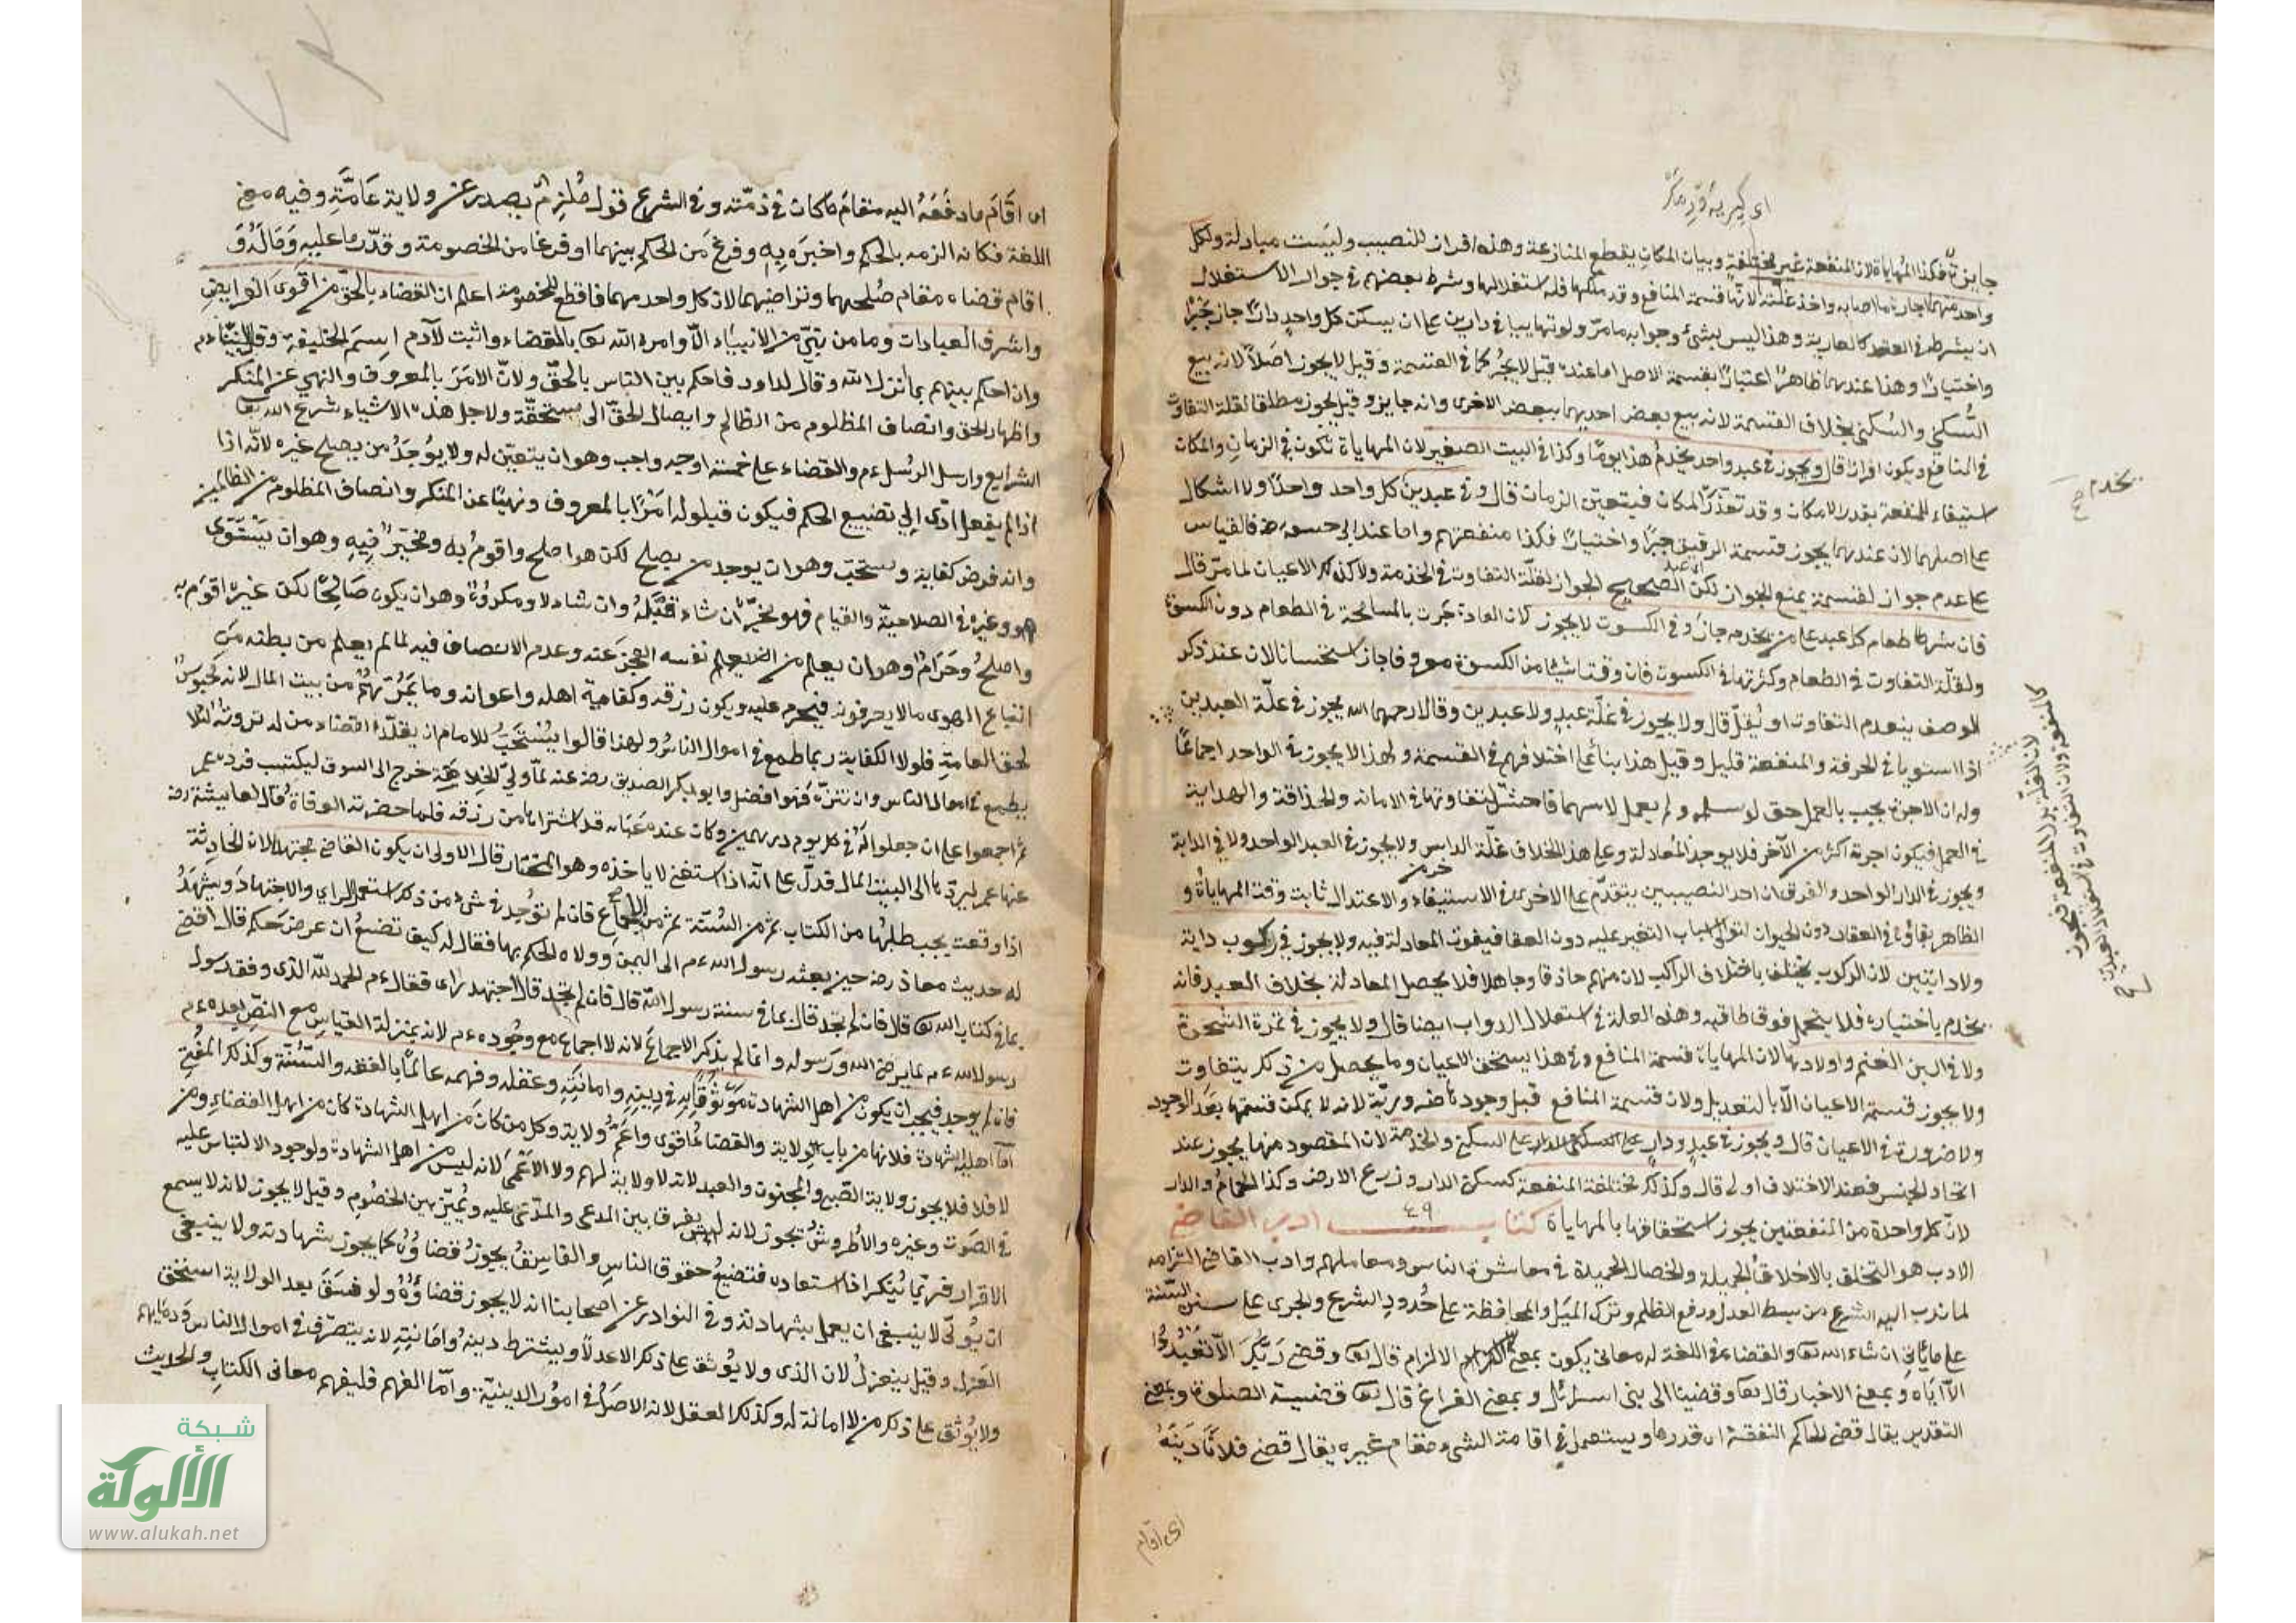 جايزة فكذا المهاياة لان المنفعة غير مختلفة وبيان المكان يقطع المنازعة وهذه افراز للنصيب وليست مبادلة ولكل
واحد منهما اجارة ما اصابه واخذ غلته لانها قسمة المنافع وقد ملكها فله استغلالها وشرط بعضهم في جواز الاستغلال
ان يشرط في العقد كالعارية وهذا ليس بشئ وجوابه ما مر ولو تهاييا في دارين على ان يسكن كل واحد دارا جاز جبرا
واختيارا وهذا عندهما ظاهر اعتبارا بقسمة الاصل اما عنده قيل لا يجبر كما في القسمة وقيل لا يجوز اصلا لانه بيع
السكنى والسكنى بخلاف القسمة لانه بيع بعض احديهما ببعض الاخرى وانه جايز وقيل يجوز مطلقا لقلة التفاوت
في المنافع ويكون افرازا قال ويجوز في عبد واحد يخدم هذا يوما وكذا في البيت الصغير لان المهاياة تكون في الزمان والمكان
استيفاء للمنفعة بقدر الامكان وقد تعذر المكان فيتعين الزمان قال وفي عبدين كل واحد واحدا ولا اشكال
على اصلهما لان عندهما يجوز قسمة الرقيق جبرا واختيارا فكذا منفعتهم واما عند ابي حنيفة رضه فالقياس
على عدم جواز القسمة يمنع الجواز لكن الصحيح الجواز لقلة التفاوت في الخدمة ولا كذلك الاعيان لما مر قال
فان شرطا طعام كل عبد على من يخدمه جاز وفي الكسوت لا يجوز لان العادة جرت بالمسامحة في الطعام دون الكسوة
ولقلة التفاوت في الطعام وكثرتها في الكسوت فان وقتا شيئا من الكسوة معروفا جاز استحسانا لان عند ذكر
الوصف ينعدم التفاوت او يقل قال ولا يجوز في غلة عبد ولا عبدين وقالا رحمهما الله يجوز في غلة العبدين
اذا استويا في الحرفة والمنفعة قليل وقيل هذا بناء على اختلافهم في القسمة ولهذا لا يجوز في الواحد اجماعا
وله ان الاجرة يجب بالعمل حق لو سلم ولم يعمل لاسهما فاحش لتفاوتها في الامانة والحذاقة والهداية
في العمل فيكون اجرته اكثر من الآخر فلا يوجد المعادلة وعلى هذا الخلاف غلة الدابتين ولا يجوز في العبد الواحد ولا في الدابة
ويجوز في الدار الواحد والفرق ان احد النصيبين يتقدم على الاخرى في الاستيفاء والاعتدال ثابت وقت المهاياة و
الظاهر بقاؤه في العقار دون الحيوان لتوالي اسباب التغير عليه دون العقار فيفوت المعادلة فيه ولا يجوز في ركوب دابة
ولا دابتين لان الركوب يختلف باختلاف الراكب لان منهم حاذقا وجاهلا فلا يحصل المعادلة بخلاف العبد فانه
يخدم باختياره فلا يتحمل فوق طاقته وهذه العلة في استغلال الدواب ايضا قال ولا يجوز في ثمرة الشجرة
ولا في لبن الغنم واولادها لان المهاياة قسمة المنافع وفي هذا يستحق الاعيان وما يحصل من ذلك يتفاوت
ولا يجوز قسمة الاعيان الا بالتعديل ولان قسمة المنافع قبل وجودها ضرورية لانه لا يمكن قسمتها بعد الوجود
ولا ضرورة في الاعيان قال ويجوز في عبد ودار على السكنى والخدمة لان المقصود منهما يجوز عند
اتحاد الجنس فعند الاختلاف اولى قال وكذلك مختلفة المنفعة كسكنى الدار وزرع الارض وكذا الحمام والدار
لان كل واحدة من المنفعتين يجوز استحقاقها بالمهاياة كتاب ٤٩ ادب القاضي
الادب هو التخلق بالاخلاق الجميلة والخصال الحميدة في معاشرة الناس ومعاملتهم وادب القاضي التزامه
لما ندب اليه الشرع من بسط العدل ودفع الظلم وترك الميل والمحافظة على حدود الشرع والجري على سنن السنة
على ما يأتي ان شاء الله تعا والقضاء في اللغة له معان يكون بمعنى الالزام قال تعا وقضى ربك الا تعبدوا
الا اياه وبمعنى الاخبار قال تعا وقضينا الى بني اسرائل وبمعنى الفراغ قال تعا قضيت الصلوة وبمعنى
التقدير يقال قضى الحاكم النفقة اي قدرها ويستعمل في اقامة الشيء مقام غيره يقال قضى فلانا دينه
اي اقام
يخدم صح
اي اقام ما دفعه اليه مقام ما كان في ذمته وفي الشرع قول ملزم يصدر عن ولاية عامة وفيه معنى
اللغة فكانه الزمه بالحكم واخبره به وفرغ من الحكم بينهما او فرغا من الخصومة وقدر ما عليه وماله و
اقام قضاه مقام صلحهما وتراضيهما لان كل واحد منهما قاطع للخصومة اعلم ان القضاء بالحق من اقوى الفرايض
واشرف العبادات وما من نبي من الانبياء الا وامره الله تعا بالقضاء واثبت لآدم اسم الخليفة وقال لنبينا م
وان احكم بينهم بما انزل الله وقال لداود فاحكم بين الناس بالحق ولان الامر بالمعروف والنهي عن المنكر
واظهار الحق وانصاف المظلوم من الظالم وايصال الحق الى مستحقه ولاجل هذه الاشياء شرع الله تعا
الشرايع وارسل الرسل ءم والقضاء على خمسة اوجه واجب وهو ان يتعين له ولا يوجد من يصلح غيره لانه اذا
اذا لم يفعل ادى الى تضييع الحكم فيكون قبوله امرا بالمعروف ونهيا عن المنكر وانصاف المظلوم من الظالمين
وانه فرض كفاية ومستحب وهو ان يوجد من يصلح لكن هو اصلح واقوم به ومخير فيه وهو ان يستوى
هو وغيره في الصلاحية والقيام فهو مخير ان شاء تقبله وان شاء لا ومكروه وهو ان يكون صالحا لكن غيره اقوم به
واصلح وحرام وهو ان يعلم من نفسه العجز عنه وعدم الانصاف فيه لما لم يعلم من بطنه من
اتباع الهوى ما لا يعرفونه فيحرم عليه ويكون رزقه وكفاية اهله واعوانه وما يمونهم من بيت المال لانه محبوس
لحق العامة فلولا الكفاية ربما طمع في اموال الناس ولهذا قالوا يستحب للامام ان يقلد القضاء من له ثروة لئلا
يطمع في اموال الناس وان تنزه فهو افضل وابو بكر الصديق رضه عنه لما ولي الخلافة خرج الى السوق ليكتسب فرده عمر
ثم اجمعوا على ان جعلوا له في كل يوم درهمين وكان عنده عباءة قد اشتراها من رزقه فلما حضرته الوفاة قال لعايشة رضه
عنها عمر ليردها الى البيت المال فدل على انه اذا استغنى لا ياخذه وهو المختار قال الاولى ان يكون القاضي مجتهدا لان الحادثة
اذا وقعت يجب طلبها من الكتاب ثم من السنة ثم من الاجماع فان لم توجد في شيء من ذلك استعمل الراي والاجتهاد ويشهد
له حديث معاذ رضه حين بعثه رسول الله ءم الى اليمن وولاه الحكم بها فقال له كيف تصنع ان عرض حكم قال اقضى
بما في كتاب الله تعا قال فان لم تجد قال بما في سنة رسول الله قال فان لم تجد قال اجتهد راى فقال ءم الحمد لله الذى وفق رسول
رسول الله ءم بما يرضى الله ورسوله وانما لم يذكر الاجماع لانه لا اجماع مع وجوده ءم لانه بمنزلة القياس مع النص بعده ءم
فان لم يوجد فيجب ان يكون من اهل الشهادة موثوقا به في دينه وامانته وعقله وفهمه عالما بالفقه والسنة وكذلك المفتى
اما اهلية الشهادة فلانها من باب الولاية والقضاء اقوى واعم ولاية وكل من كان من اهل الشهادة كان من اهل القضاء ومن
لا فلا فلا يجوز ولاية الصبي والمجنون والعبد لانه لا ولاية لهم ولا الاعمى لانه ليس من اهل الشهادة ولوجود الالتباس عليه
في الصوت وغيره والاطروش يجوز لانه يفرق بين المدعى والمدعى عليه ويميز بين الخصوم وقيل لا يجوز لانه لا يسمع
الاقرار فربما ينكر اذا استعاده فتضيع حقوق الناس والفاسق يجوز قضاؤه كما يجوز شهادته ولا ينبغى
ان يولى لا ينبغى ان يعمل بشهادته وفي النوادر عن اصحابنا انه لا يجوز قضاؤه ولو فسق بعد الولاية استحق
العزل وقيل ينعزل لان الذى ولا يوثق على ذلك الا عدلا ويشترط دينه وامانته لانه يتصرف في اموال الناس ودمائهم
ولا يوثق على ذلك من لا امانة له وكذلك العقل لانه الاصل في امور الدينية واما الفهم فليفهم معاني الكتاب والحديث
شبكة
الألوكة
www.alukah.net